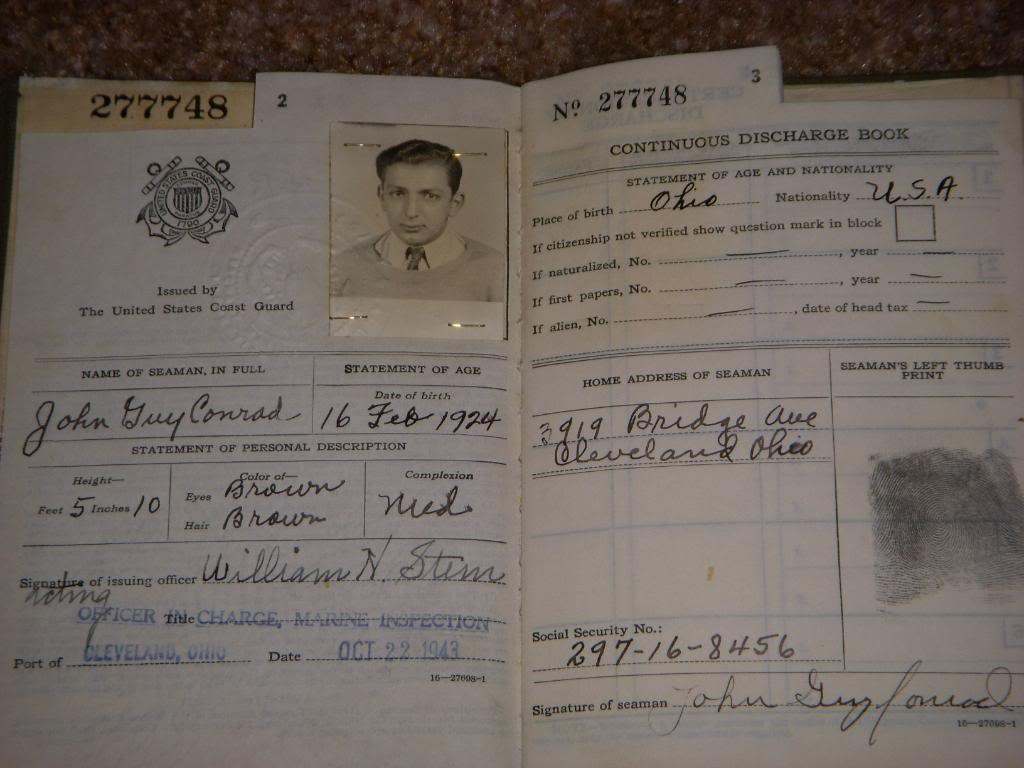 277748
2
UNITED STATES COAST GUARD
1790
Issued by
The United States Coast Guard
NAME OF SEAMAN, IN FULL
STATEMENT OF AGE
Date of birth
John Guy Conrad
16 Feb 1924
STATEMENT OF PERSONAL DESCRIPTION
Height—
Color of—
Complexion
Feet 5 Inches 10
Eyes Brown
Hair Brown
Med
Signature of issuing officer William H. Stem
Acting
OFFICER IN CHARGE, MARINE INSPECTION
Title
Port of CLEVELAND, OHIO Date OCT 22 1943
16—27698-1
3
No 277748
CONTINUOUS DISCHARGE BOOK
STATEMENT OF AGE AND NATIONALITY
Place of birth Ohio Nationality U.S.A.
If citizenship not verified show question mark in block
If naturalized, No. —, year —
If first papers, No. —, year —
If alien, No. , date of head tax —
HOME ADDRESS OF SEAMAN
SEAMAN'S LEFT THUMB
PRINT
3919 Bridge Ave
Cleveland Ohio
Social Security No.:
297-16-8456
Signature of seaman John Guy Conrad
16—27698-1